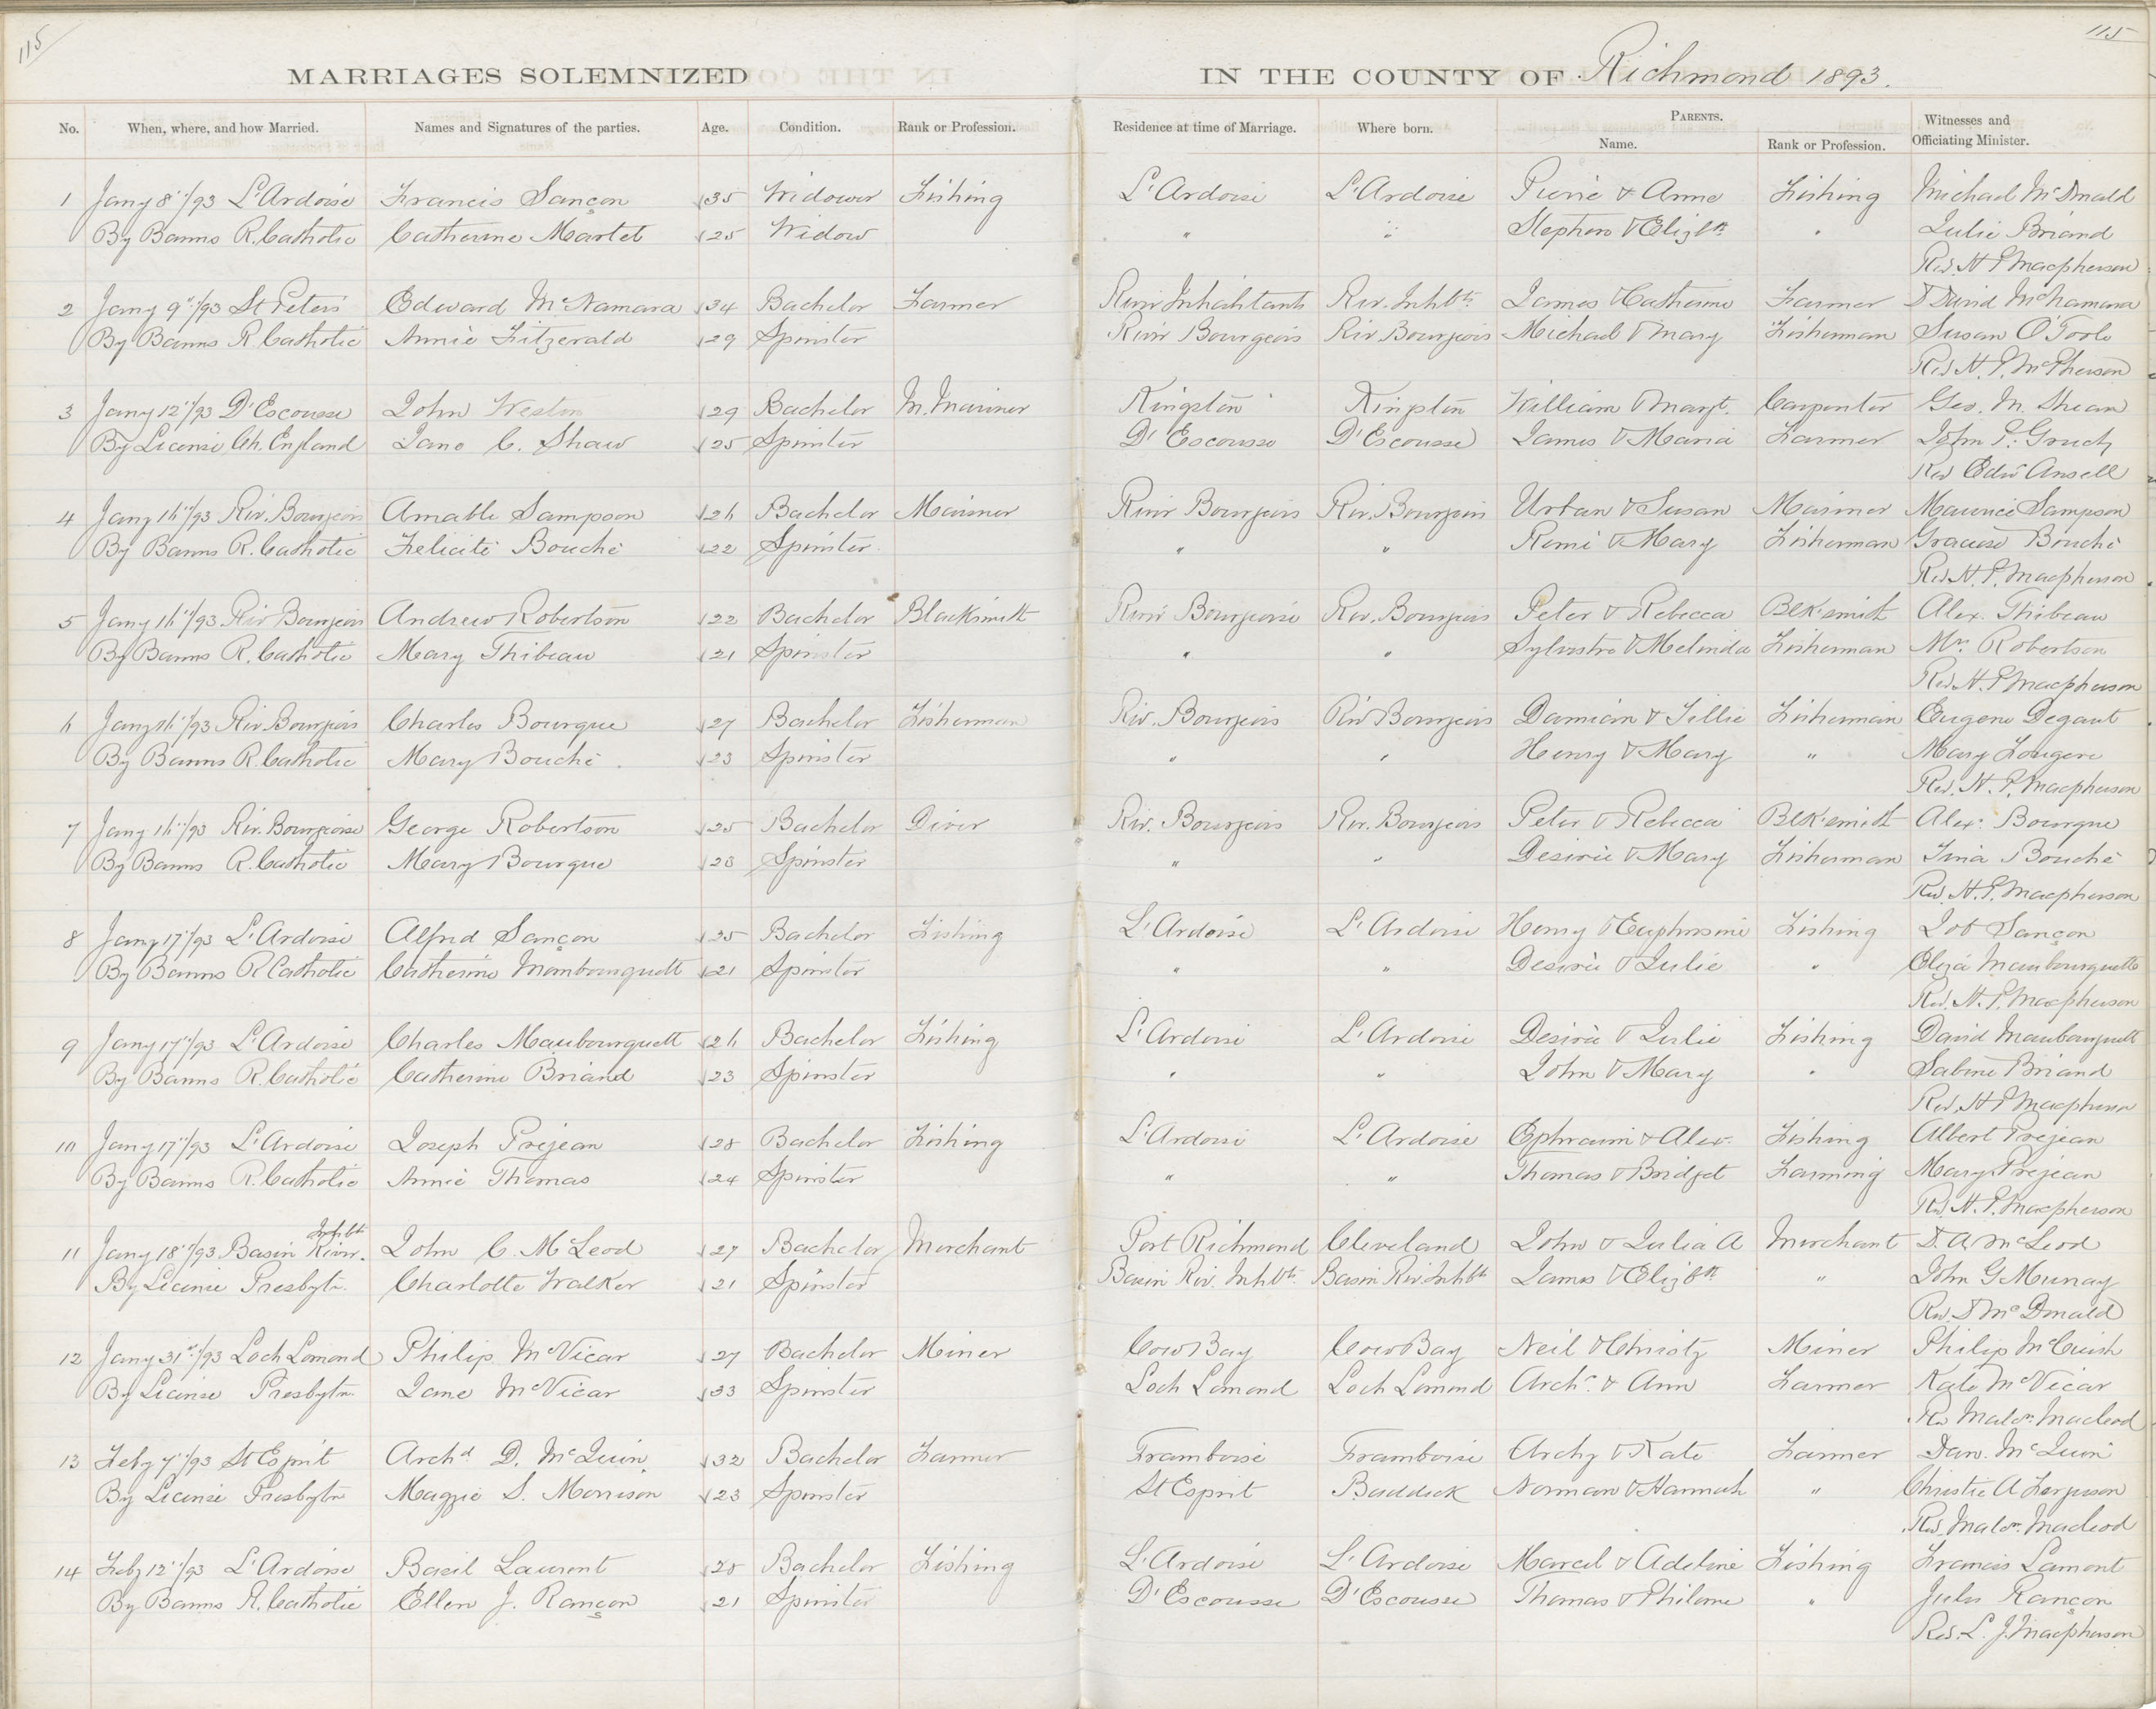 115
115
MARRIAGES SOLEMNIZED IN THE COUNTY OF Richmond 1893.
No. When, where, and how Married. Names and Signatures of the parties. Age. Condition. Rank or Profession. Residence at time of Marriage. Where born. PARENTS. Name. Rank or Profession. Witnesses and Officiating Minister.
1 Jany 8"/93 L'Ardoise Francis Sançon 35 Widower Fishing L'Ardoise L'Ardoise Pierie & Anne Fishing Michael McDonald
By Banns R. Catholic Catherine Martet 25 Widow " " Stephen & Elizbth " Julie Briand
Rev. H P Macpherson
2 Jany 9"/93 St Peters Edward McNamara 34 Bachelor Farmer River Inhabitants Riv. Inhbts James & Catherine Farmer David McNamara
By Banns R. Catholic Annie Fitzgerald 29 Spinster River Bourgeois Riv. Bourgeois Michael & Mary Fisherman Susan O'Toole
Rev H. P. McPherson
3 Jany 12"/93 D'Escousse John Weston 29 Bachelor M. Mariner Kingston Kingston William & Margt. Carpenter Geo. M. Shean
By License Ch. England Jane C. Shaw 25 Spinster D'Escousse D'Escousse James & Maria Farmer John P. Gruchy
Rev Edwd Ansell
4 Jany 16"/93 Riv. Bourgeois Amable Sampson 26 Bachelor Mariner River Bourgeois Riv. Bourgeois Urban & Susan Mariner Maurice Sampson
By Banns R. Catholic Felicite Bouché 22 Spinster " " Remi & Mary Fisherman Graciese Bouché
Rev. H. P. Macpherson
5 Jany 16"/93 Riv Bourgeois Andrew Robertson 22 Bachelor Blacksmith River Bourgeoise Riv. Bourgeois Peter & Rebecca Blksmith Alex. Thibeau
By Banns R. Catholic Mary Thibeau 21 Spinster " " Sylvestre & Melinda Fisherman Mr. Robertson
Rev. H. P Macpherson
6 Jany 16"/93 Riv Bourgeois Charles Bourque 27 Bachelor Fisherman Riv. Bourgeois Riv Bourgeois Damian & Tillie Fisherman Eugene Degant
By Banns R. Catholic Mary Bouché 23 Spinster " " Henry & Mary " Mary Fougere
Rev. H. P. Macpherson
7 Jany 16"/93 Riv. Bourgeoise George Robertson 25 Bachelor Diver Riv. Bourgeois Riv. Bourgeois Peter & Rebecca Blksmith Alex. Bourque
By Banns R. Catholic Mary Bourque 23 Spinster " " Desirie & Mary Fisherman Tina Bouché
Rev. H. P. Macpherson
8 Jany 17"/93 L'Ardoise Alfred Sançon 25 Bachelor Fishing L'Ardoise L'Ardoise Henry & Euphrosine Fishing Job Sançon
By Banns R Catholic Catherine Mambourquett 21 Spinster " " Desirie & Julie " Eliza Mambourquette
Rev. H. P. Macpherson
9 Jany 17"/93 L'Ardoise Charles Maubourquett 26 Bachelor Fishing L'Ardoise L'Ardoise Desirie & Julie Fishing David Maubourquett
By Banns R. Catholic Catherine Briand 23 Spinster " " John & Mary " Sabine Briand
Rev. H P Macpherson
10 Jany 17"/93 L'Ardoise Joseph Prejean 28 Bachelor Fishing L'Ardoise L'Ardoise Ephraim & Alex. Fishing Albert Prejean
By Banns R. Catholic Annie Thomas 24 Spinster " " Thomas & Bridget Farming Mary Prejean
Rev. H. P. Macpherson
11 Jany 18"/93 Basin River Inhbts. John C. McLeod 27 Bachelor Merchant Port Richmond Cleveland John & Julia A Merchant D. A. McLeod
By License Presbytn. Charlotte Walker 21 Spinster Basin Riv. Inhbts. Basin Riv. Inhbts James & Elizbth " John G Murray
Rev. D McDonald
12 Jany 31st/93 Loch Lomond Philip McVicar 27 Bachelor Miner Cow Bay Cow Bay Neil & Christy Miner Philip McCuish
By License Presbytn. Jane McVicar 33 Spinster Loch Lomond Loch Lomond Archd. & Ann Farmer Kate McVicar
Rev Malcm. Macleod
13 Feby 7"/93 St Esprit Archd D. McQuin 32 Bachelor Farmer Framboise Framboise Archy & Kate Farmer Dan. McQuin
By License Presbytn Maggie S. Morrison 23 Spinster St Esprit Baddeck Norman & Hannah " Christie A Ferguson
Rev. Malcm. Macleod
14 Feby 12"/93 L'Ardoise Basil Laurent 28 Bachelor Fishing L'Ardoise L'Ardoise Marcil & Adeline Fishing Francis Lamont
By Banns R. Catholic Ellen J. Rançon 21 Spinster D'Escousse D'Escousse Thomas & Philome " Jules Rançon
Rev. L. J. Macpherson